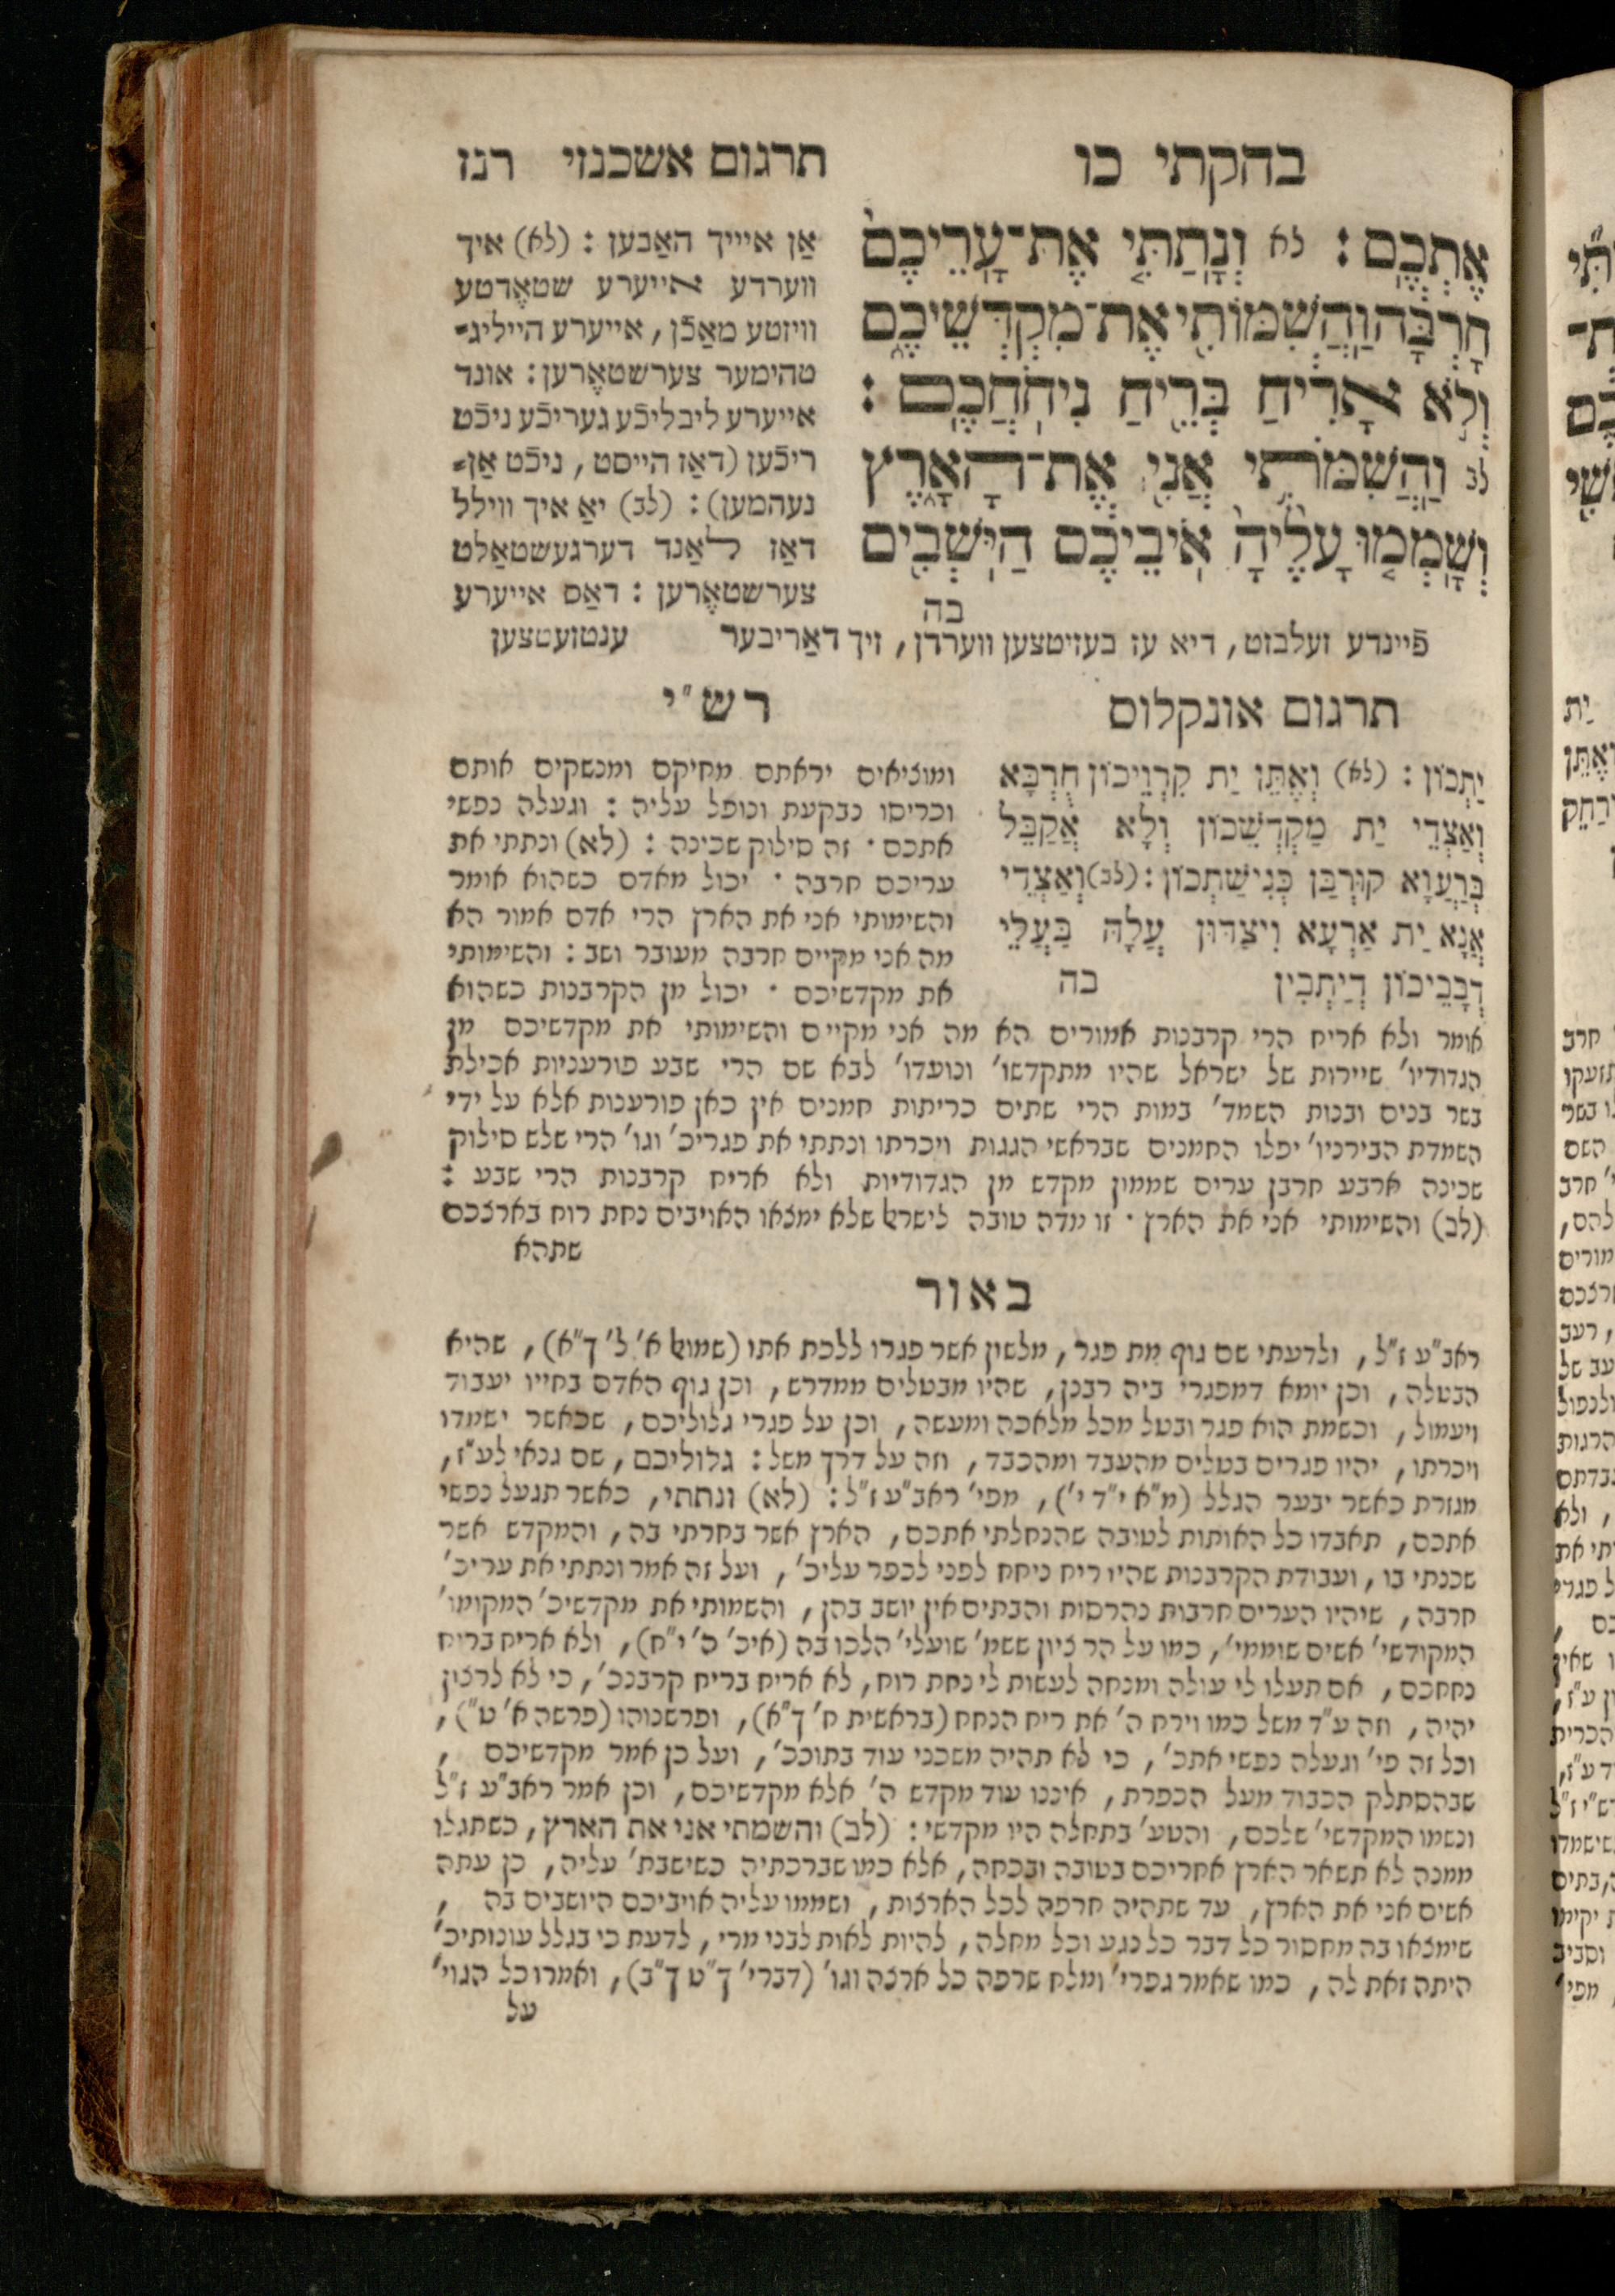 בחקתי כו
תרגום אשכנזי רנז
אֶתְכֶֽם׃ לא וְנָתַתִּ֤י אֶת־עָֽרֵיכֶם֙
חָרְבָּ֔ה וַהֲשִׁמּוֹתִ֖י אֶת־מִקְדְּשֵׁיכֶ֑ם
וְלֹ֣א אָרִ֔יחַ בְּרֵ֖יחַ נִיחֹֽחֲכֶֽם׃
לב וַהֲשִׁמֹּתִ֥י אֲנִ֖י אֶת־הָאָ֑רֶץ
וְשָֽׁמְמ֤וּ עָלֶ֙יהָ֙ אֹֽיְבֵיכֶ֔ם הַיֹּֽשְׁבִ֖ים
בה
אַן אייך האַבען : (לא) איך
ווערדע אייערע שטאֶדטע
וויזטע מאַכֿן, אייערע הייליג-
טהימער צערשטאֶרען: אונד
אייערע ליבליכֿע געריכֿע ניכֿט
ריכֿען (דאַז הייסט, ניכֿט אַן-
נעהמען): (לב) יאַ איך ווילל
דאַז לאַנד דערגעשטאַלט
צערשטאֶרען : דאַס אייערע
פֿיינדע זעלבזט, דיא עז בעזיטצען ווערדן, זיך דאַריבער ענטזעטצען
תרגום אונקלוס
יַתְכוֹן : (לא) וְאֶתֵּן יַת קִרְוֵיכוֹן חֻרְבָּא
וְאַצְדֵי יַת מַקְדְשֵׁכוֹן וְלָא אֲקַבֵּל
בְּרַעֲוָא קוּרְבַּן כְּנִישַׁתְכוֹן: (לב) וְאַצְדֵי
אֲנָא יַת אַרְעָא וִיצַדּוּן עֲלָהּ בַּעֲלֵי
דְבָבֵיכוֹן דְיַתְבִין בה
רש"י
ומוציאים יראתם מחיקם ומנשקים אותם
וכריסו נבקעת ונופל עליה : וגעלה נפשי
אתכם · זה סילוק שכינה : (לא) ונתתי את
עריכם חרבה · יכול מאדם כשהוא אומר
והשימותי אני את הארץ הרי אדם אמור הא
מה אני מקיים חרבה מעובר ושב : והשימותי
את מקדשיכם · יכול מן הקרבנות כשהוא
אומר ולא אריח הרי קרבנות אמורים הא מה אני מקיים והשימותי את מקדשיכם מן
הגדודיו' שיירות של ישראל שהיו מתקדשו' ונועדו' לבא שם הרי שבע פורעניות אכילת
בשר בנים ובנות השמד' במות הרי שתים כריתות חמנים אין כאן פורענות אלא על ידי
השמדת הבירניו' יפלו החמנים שבראשי הגגות ויכרתו ונתתי את פגריכ' וגו' הרי שלש סילוק
שכינה ארבע חרבן ערים שממון מקדש מן הגדודיות ולא אריח קרבנות הרי שבע :
(לב) והשימותי אני את הארץ · זו מדה טובה לישראל שלא ימצאו האויבים נחת רוח בארצכם
שתהא
באור
ראב"ע ז"ל, ולדעתי שם גוף מת פגר, מלשון אשר פגרו ללכת אתו (שמואל א' ל' ך"א), שהיא
הבטלה, וכן יומא דמפגרי ביה רבנן, שהיו מבטלים ממדרש, וכן גוף האדם בחייו יעבוד
ויעמול, וכשמת הוא פגר ובטל מכל מלאכה ומעשה, וכן על פגרי גלוליכם, שכאשר ישמדו
ויכרתו, יהיו פגרים בטלים מהעבד ומהכבד, וזה על דרך משל : גלוליכם, שם גנאי לע"ז,
מגזרת כאשר יבער הגלל (מ"א י"ד י'), מפי' ראב"ע ז"ל : (לא) ונתתי, כאשר תגעל נפשי
אתכם, תאבדו כל האותות לטובה שהנחלתי אתכם, הארץ אשר בחרתי בה, והמקדש אשר
שכנתי בו, ועבודת הקרבנות שהיו ריח ניחח לפני לכפר עליכ', ועל זה אמר ונתתי את עריכ'
חרבה, שיהיו הערים חרבות נהרסות והבתים אין יושב בהן, והשמותי את מקדשיכ' המקומו'
המקודשי' אשים שוממי', כמו על הר ציון ששמ' שועלי' הלכו בה (איכ' ה' י"ח), ולא אריח בריח
נחחכם, אם תעלו לי עולה ומנחה לעשות לי נחת רוח, לא אריח בריח קרבנכ', כי לא לרצון
יהיה, וזה ע"ד משל כמו וירח ה' את ריח הנחח (בראשית ח' ך"א), ופרשנוהו (פרשה א' ט"),
וכל זה פי' וגעלה נפשי אתכ', כי לא תהיה משכני עוד בתוככ', ועל כן אמר מקדשיכם,
שבהסתלק הכבוד מעל הכפרת, איננו עוד מקדש ה' אלא מקדשיכם, וכן אמר ראב"ע ז"ל
ונשמו המקדשי' שלכם, והטע' בתחלה היו מקדשי : (לב) והשמתי אני את הארץ, כשתגלו
ממנה לא תשאר הארץ אחריכם בטובה ובכחה, אלא כמו שברכתיה כשישבת' עליה, כן עתה
אשים אני את הארץ, עד שתהיה חרפה לכל הארצות, ושממו עליה אויביכם היושבים בה,
שימצאו בה מחסור כל דבר כל נגע וכל מחלה, להיות לאות לבני מרי, לדעת כי בגלל עונותיכ'
היתה זאת לה, כמו שאמר גפרי' ומלח שרפה כל ארצה וגו' (דברי' ך"ט ך"ב), ואמרו כל הגוי'
על